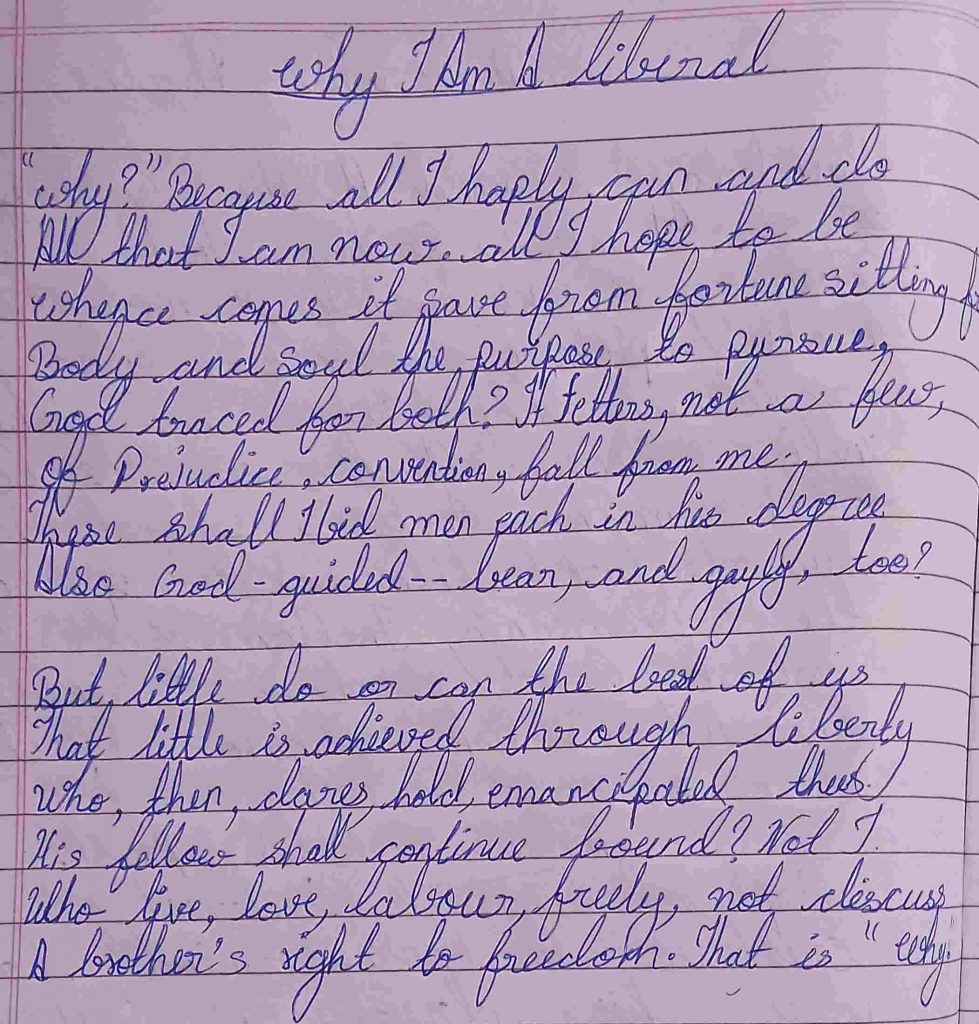 Why I Am A liberal
"Why?" Because all I haply can and do
All that I am now. all I hope to be
Whence comes it save from fortune sitting
Body and Soul the purpose to pursue,
God traced for both? If fetters, not a few,
Of Prejudice, convention, fall from me.
These shall I bid men each in his degree
Also God-guided-- bear, and gayly, too?
But little do or can the best of us
That little is achieved through liberty
Who, then, dares, hold, emancipated thus.
His fellow shall continue bound? Not I.
Who live, love, labour, freely, not discuss
A brother's right to freedom. That is "Why.